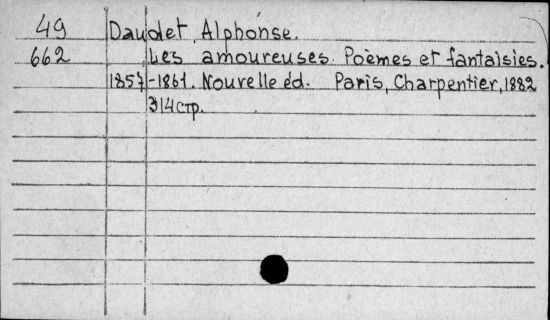 49 Daudet, Alphonse.
662 Les amoureuses. Poèmes et fantaisies.
1857-1861. Nouvelle éd. Paris, Charpentier, 1882
314 стр.